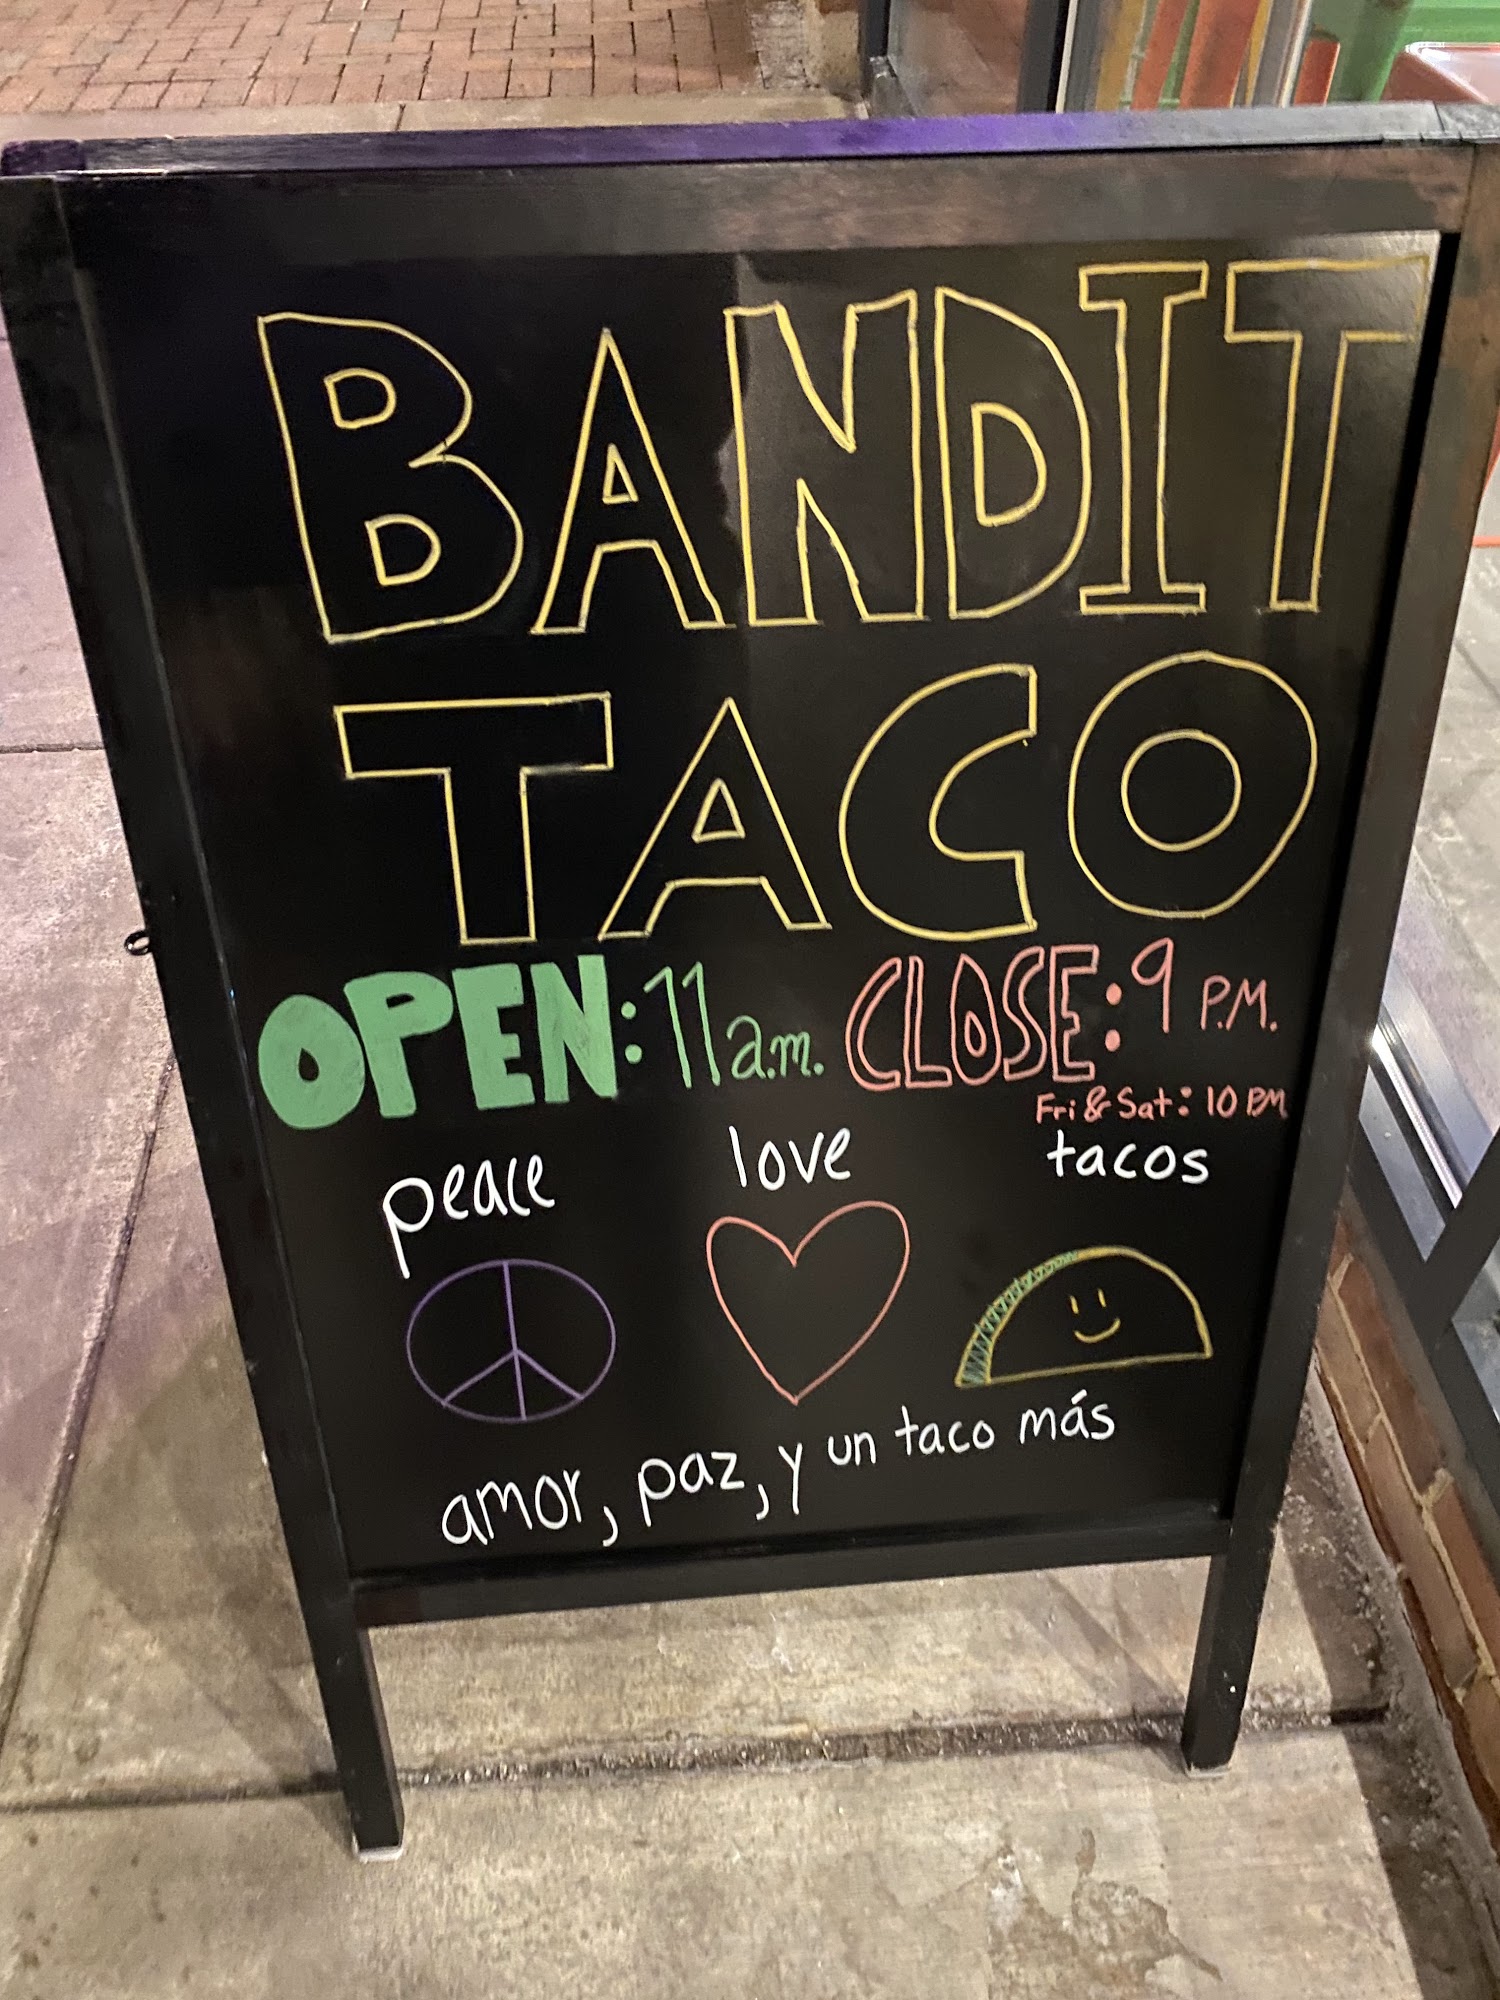 BANDIT
TACO
OPEN: 11 a.m. CLOSE: 9 P.M.
Fri & Sat: 10 PM
peace love tacos
amor, paz, y un taco más